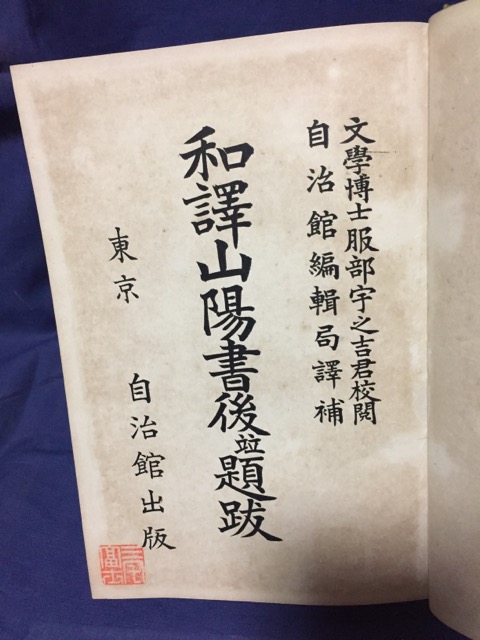 文學博士服部宇之吉君校閲
自治館編輯局譯補
和譯山陽書後竝題跋
東京
自治館出版